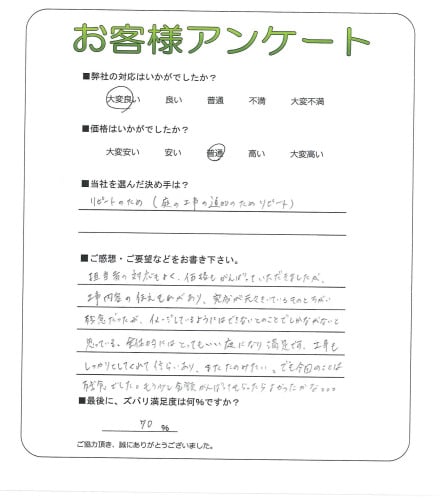 お客様アンケート
■弊社の対応はいかがでしたか?
大変良い 良い 普通 不満 大変不満
■価格はいかがでしたか?
大変安い 安い 普通 高い 大変高い
■当社を選んだ決め手は?
リピートのため(庭の工事の追加のためリピート)
■ご感想・ご要望などをお書き下さい。
担当者の対応もよく、価格もがんばっていただきましたが、
工事内容の伝えもれがあり、
残念だったが、イメージしているようにはできないとのことでしかながないと
思っている。全体的にはとってもいい庭になり満足です。工事も
しっかりとしてくれて信らいあり、またたのみたい。でも今回のことは
残念でした。もう少し金額がんばってもらったらよかったかな。。。
■最後に、ズバリ満足度は何%ですか?
90 %
ご協力頂き、誠にありがとうございました。